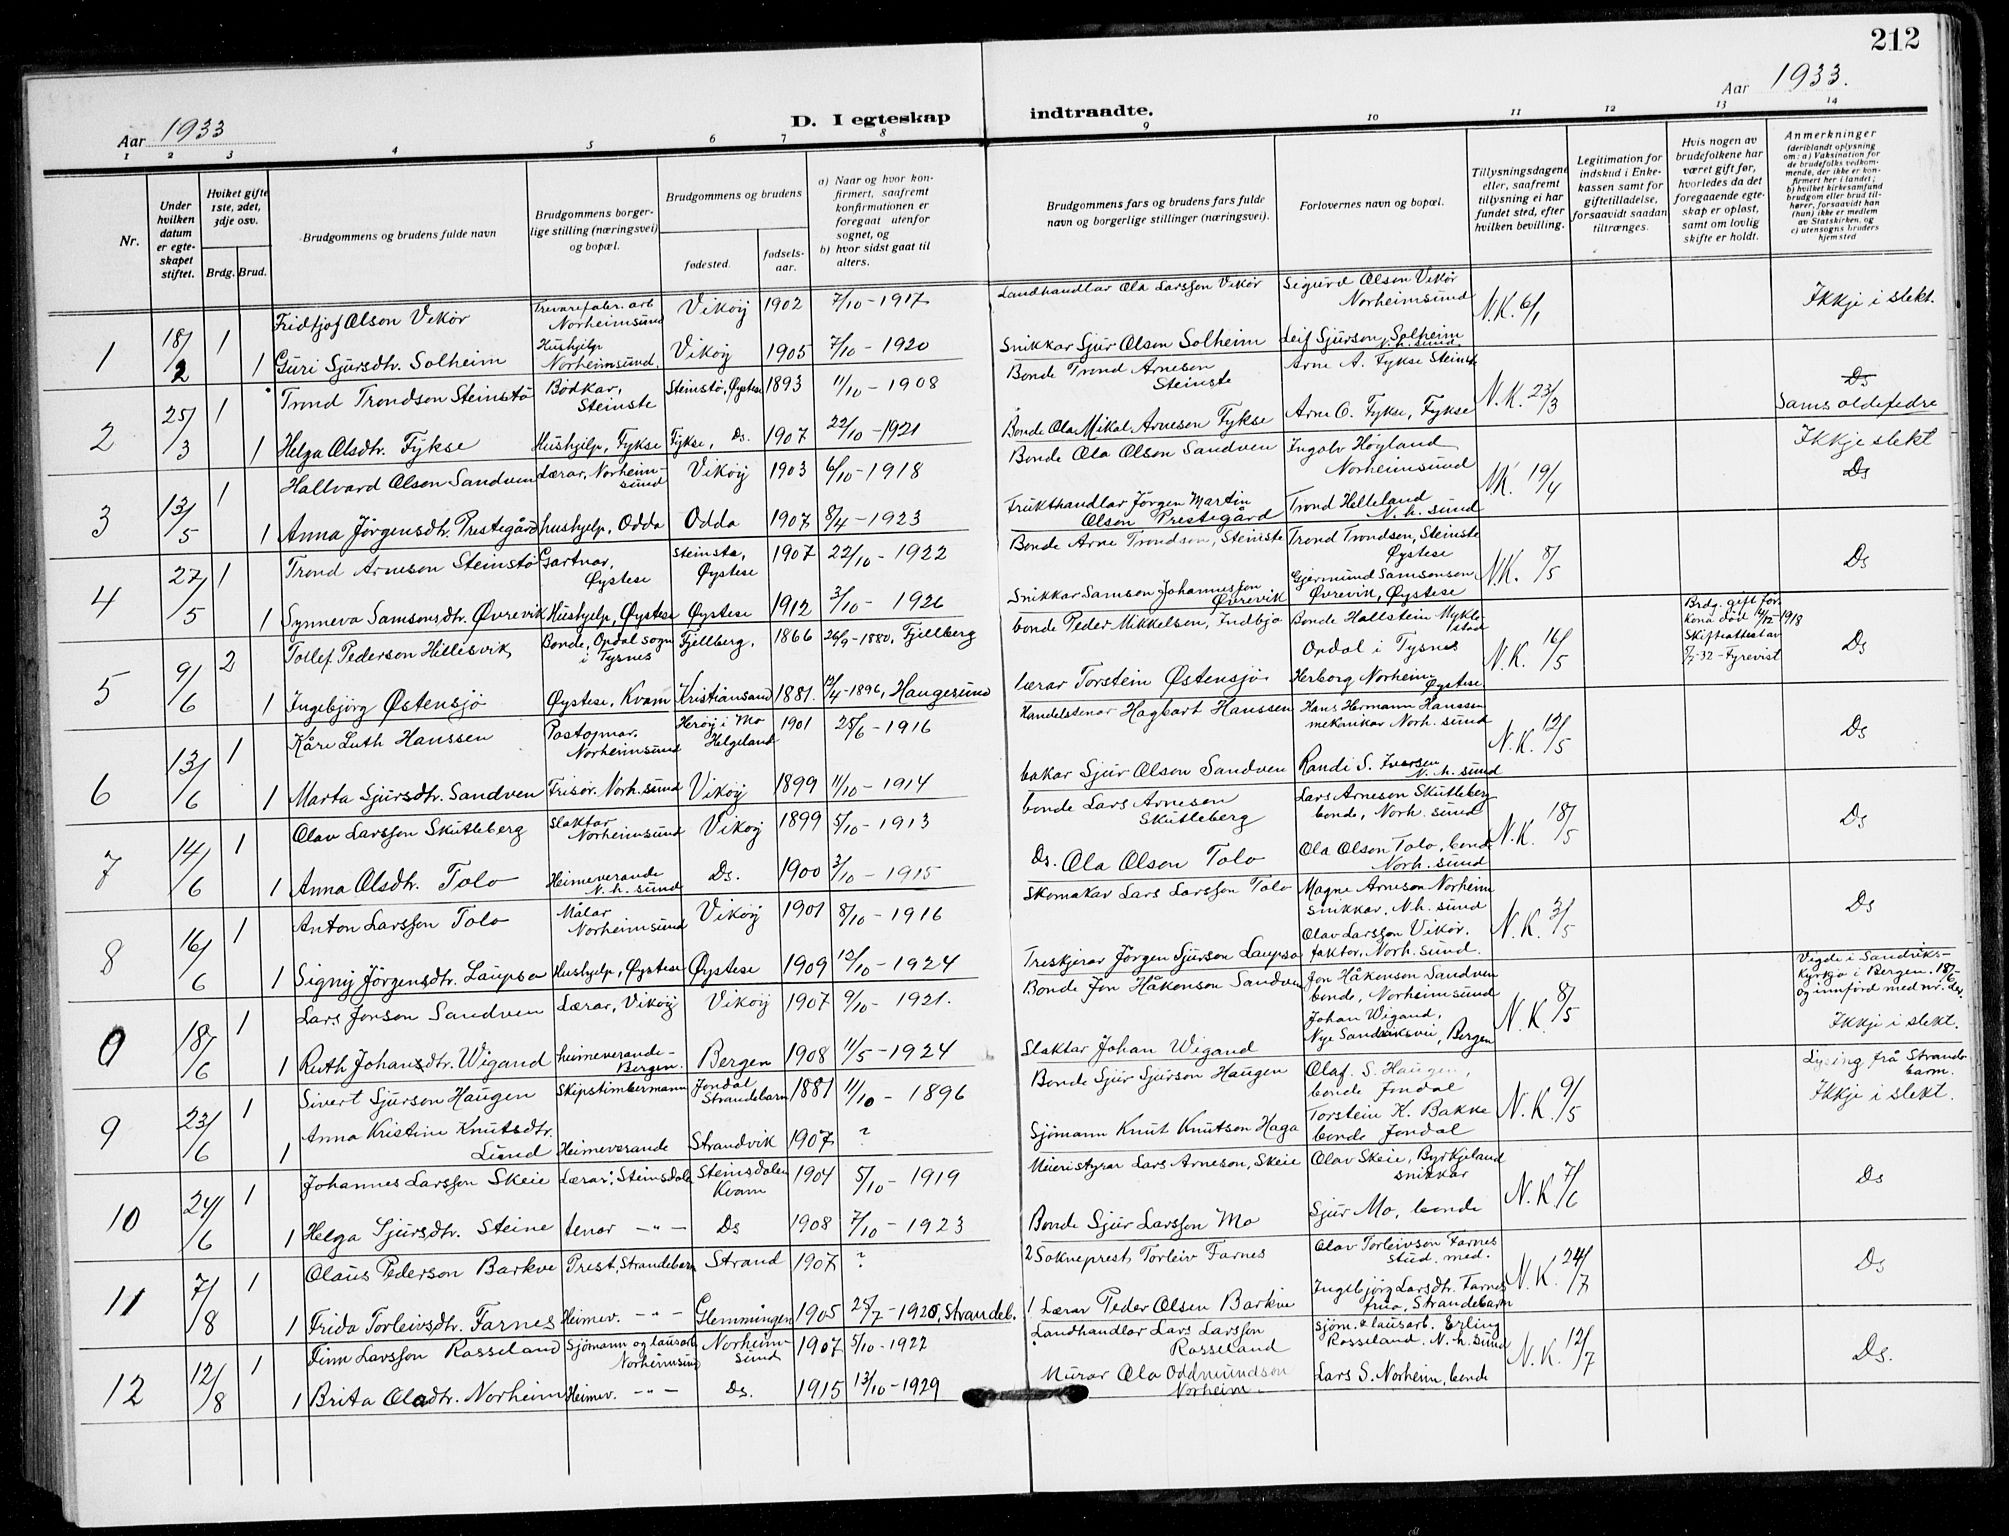 212
Aar 1933
D. I egteskap indtraadte.
Aar 1933.
1 2 3 4 5 6 7 8 9 10 11 12 13 14
Nr.
Under hvilken datum er egteskapet stiftet.
Hviket gifte 1ste, 2det, 3dje osv.
Brdg. Brud.
Brudgommens og brudens fulde navn
Brudgommens borgerlige stilling (næringsvei) og bopæl.
Brudgommens og brudens
fødested.
fødsels-aar.
a) Naar og hvor konfirmert, saafremt konfirmationen er foregaat utenfor sognet, og
b) hvor sidst gaat til alters.
Brudgommens fars og brudens fars fulde navn og borgerlige stillinger (næringsvei).
Forlovernes navn og bopæl.
Tillysningsdagene eller, saafremt tillysning ei har fundet sted, efter hvilken bevilling.
Legitimation for indskud i Enkekassen samt for giftetilladelse, forsaavidt saadan tiltrænges.
Hvis nogen av brudefolkene har været gift før, hvorledes da det foregaaende egteskap er opløst, samt om lovlig skifte er holdt.
Anmerkninger (deriblandt oplysning om: a) Vaksination for de brudefolks vedkommende, der ikke er konfirmert her i landet; b) hvilket kirkesamfund brudgom eller brud tilhører, forsaavidt han (hun) ikke er medlem av Statskirken, og c) utensogns bruders hjemsted
1 18/2 1 Fridtjof Olson Vikør Trevarefabr. arb Norheimsund Vikøy 1902 7/10 - 1917 Landhandlar Ola Larsson Vikør Sigurd Olson Vikør Norheimsund N.K. 6/1 Ikkje i slekt.
1 Guri Sjursdtr. Solheim Hushjelp Norheimsund Vikøy 1905 7/10 - 1920 Snikkar Sjur Olson Solheim Leif Sjurson Solheim N.h.sund
2 25/3 1 Trond Trondson Steinstø Bødkar, Steinste Steinstø, Øystese 1893 11/10 - 1908 Bonde Trond Arneson Steinste Arne A. Fykse Steinstø N.K. 23/3 Ds Sams oldefedre
1 Helga Olsdtr. Fykse Hushjelp, Fykse Fykse, Ds. 1907 22/10 - 1921 Bonde Ola Mikal Arneson Fykse Arne O. Fykse, Fykse
3 13/5 1 Hallvard Olson Sandven Lærar, Norheimsund Vikøy 1903 6/10 - 1918 Bonde Ola Olson Sandven Ingolv Høyland Norheimsund NK. 19/4 Ikkje slekt Ds
1 Anna Jørgensdtr. Prestegård hushjelp, Odda Odda 1907 8/4 - 1923 Frukthandlar Jørgen Martin Olson Prestegård Trond Helleland N.h.sund
4 27/5 1 Trond Arneson Steinstø Gartnar, Øystese Steinstø, Øystese 1907 22/10 - 1922 Bonde Arne Trondson, Steinste Trond Trondsen, Steinste Øystese N.K. 8/5 Ds
1 Synneva Samsonsdtr. Øvrevik Hushjelp, Øystese Øystese 1912 3/10 - 1926 Snikkar Samson Johannesson Øvrevik Gjermund Samsonson Øvrevik, Øystese
5 9/6 2 Tollef Pederson Hillesvik Bonde, Opdal sogn i Tysnes Fjellberg. 1866 26/9 - 1880, Fjellberg bonde Peder Mikkelsen, Indbjo Bonde Hallstein Myklestad Opdal i Tysnes N.K. 16/5 Brdg. gift før. kona død 4/12-1918 Skifteattest av 7/7-32 - Fyrevist Ds
1 Ingebjørg Østensjø Øystese, Kvam Kristiansand 1881. 12/4 - 1896, Haugesund lærar Torstein Østensjø. Herborg Norheim Øystese
6 13/6 1 Kåre Luth Hanssen Postopnar. Norheimsund Herøy i Mo Helgeland 1901 25/6 - 1916 Handelstenar Hagbart Hanssen Hans Hermann Hanssen meknikar Norh.sund N.K. 12/5 Ds
1 Marta Sjursdtr. Sandven Frisør. Norh.sund Vikøy 1899 11/10 - 1914 bakar Sjur Olson Sandven Randi S. Iversen N.h.sund
7 14/6 1 Olav Larsson Skutleberg Slaktar Norheimsund Vikøy 1899 5/10 - 1913 bonde Lars Arneson Skutleberg Lars Arneson Skutleberg bonde, Norh.sund N.K. 18/5 Ds
1 Anna Olsdtr. Tolo Heimeverande N.h.sund Ds. 1900 3/10 - 1915 Ds. Ola Olson Tolo Ola Olson Tolo, bonde Norh.sund
8 16/6 1 Anton Larsson Tolo Målar Norheimsund Vikøy 1901 8/10 - 1916 Skomakar Lars Larsson Tolo Magne Arneson Norheim snikkar, N.h.sund N.K. 3/5 Ds
1 Signy Jørgensdtr. Laupsa Hushjelp, Øystese Øystese 1909 12/10 - 1924 Treskjerar Jørgen Sjurson Laupsa Olav Larsson Vikør. faktor, Norh.sund.
0 18/6 1 Lars Jonson Sandven Lærar, Vikøy Vikøy 1907 9/10 - 1921. Bonde Jon Håkonson Sandven Jon Håkonson Sandven bonde, Norheimsund N.K. 8/5 Vigde i Sandvikskyrkja i Bergen. 18/6- og innførd med nr. der. Ikkje i slekt.
1 Ruth Johansdtr. Wigand heimeverande - Bergen. Bergen 1908 11/5 - 1924 Slaktar Johan Wigand Johan Wigand, Nye Sandviksvei, Bergen
9 23/6 1 Sivert Sjurson Haugen Skipstimbermann Jondal Strandebarm 1881 11/10 - 1896 Bonde Sjur Sjurson Haugen Olaf. S. Haugen, bonde Jondal N.K. 9/5 Lysing frå Strandebarm. Ikkje i slekt.
1 Anna Kristine Knutsdtr. Lund Heimeverande Strandvik 1907 ? Sjømann Knut Knutson Haga Torstein K. Bakke bonde Jondal
10 24/6 1 Johannes Larsson Skeie Lærar; Steinsdal Steinsdalen Kvam 1904 5/10 - 1919 Meieristyrar Lars Arneson, Skeie Olav Skeie, Byrkjeland snikkar N.K. 7/6 Ds
1 Helga Sjursdtr. Steine tenar - " - Ds 1908 7/10 - 1923 Bonde Sjur Larsson Mo Sjur Mo, bonde
11 7/8 1 Olaus Pederson Barkve Prest, Strandebarm Strand 1907 ? 2 Sokneprest Torleiv Farnes Olav Torleivson Farnes stud. med. N.K. 24/7 Ds
1 Frida Torleivsdtr. Farnes Heimev. - " - Glemmingen 1905 25/7 - 1920, Strandeb. 1 Lærar Peder Olsen Barkve Ingebjørg Larsdtr. Farnes frua, Strandebarm
12 12/8 1 Finn Larsson Rosseland Sjømann og lausarb. Norheimsund Norheimsund 1907 5/10 - 1922 Landhandlar Lars Larsson Rosseland Sjøm. & lausarb. Erling Rosseland. N.h.sund N.K. 12/7 Ds.
1 Brita Olsdtr. Norheim Heimev. - " - Ds. 1915 13/10 - 1929 Murar Ola Oddmundson Norheim. Lars S. Norheim, bonde